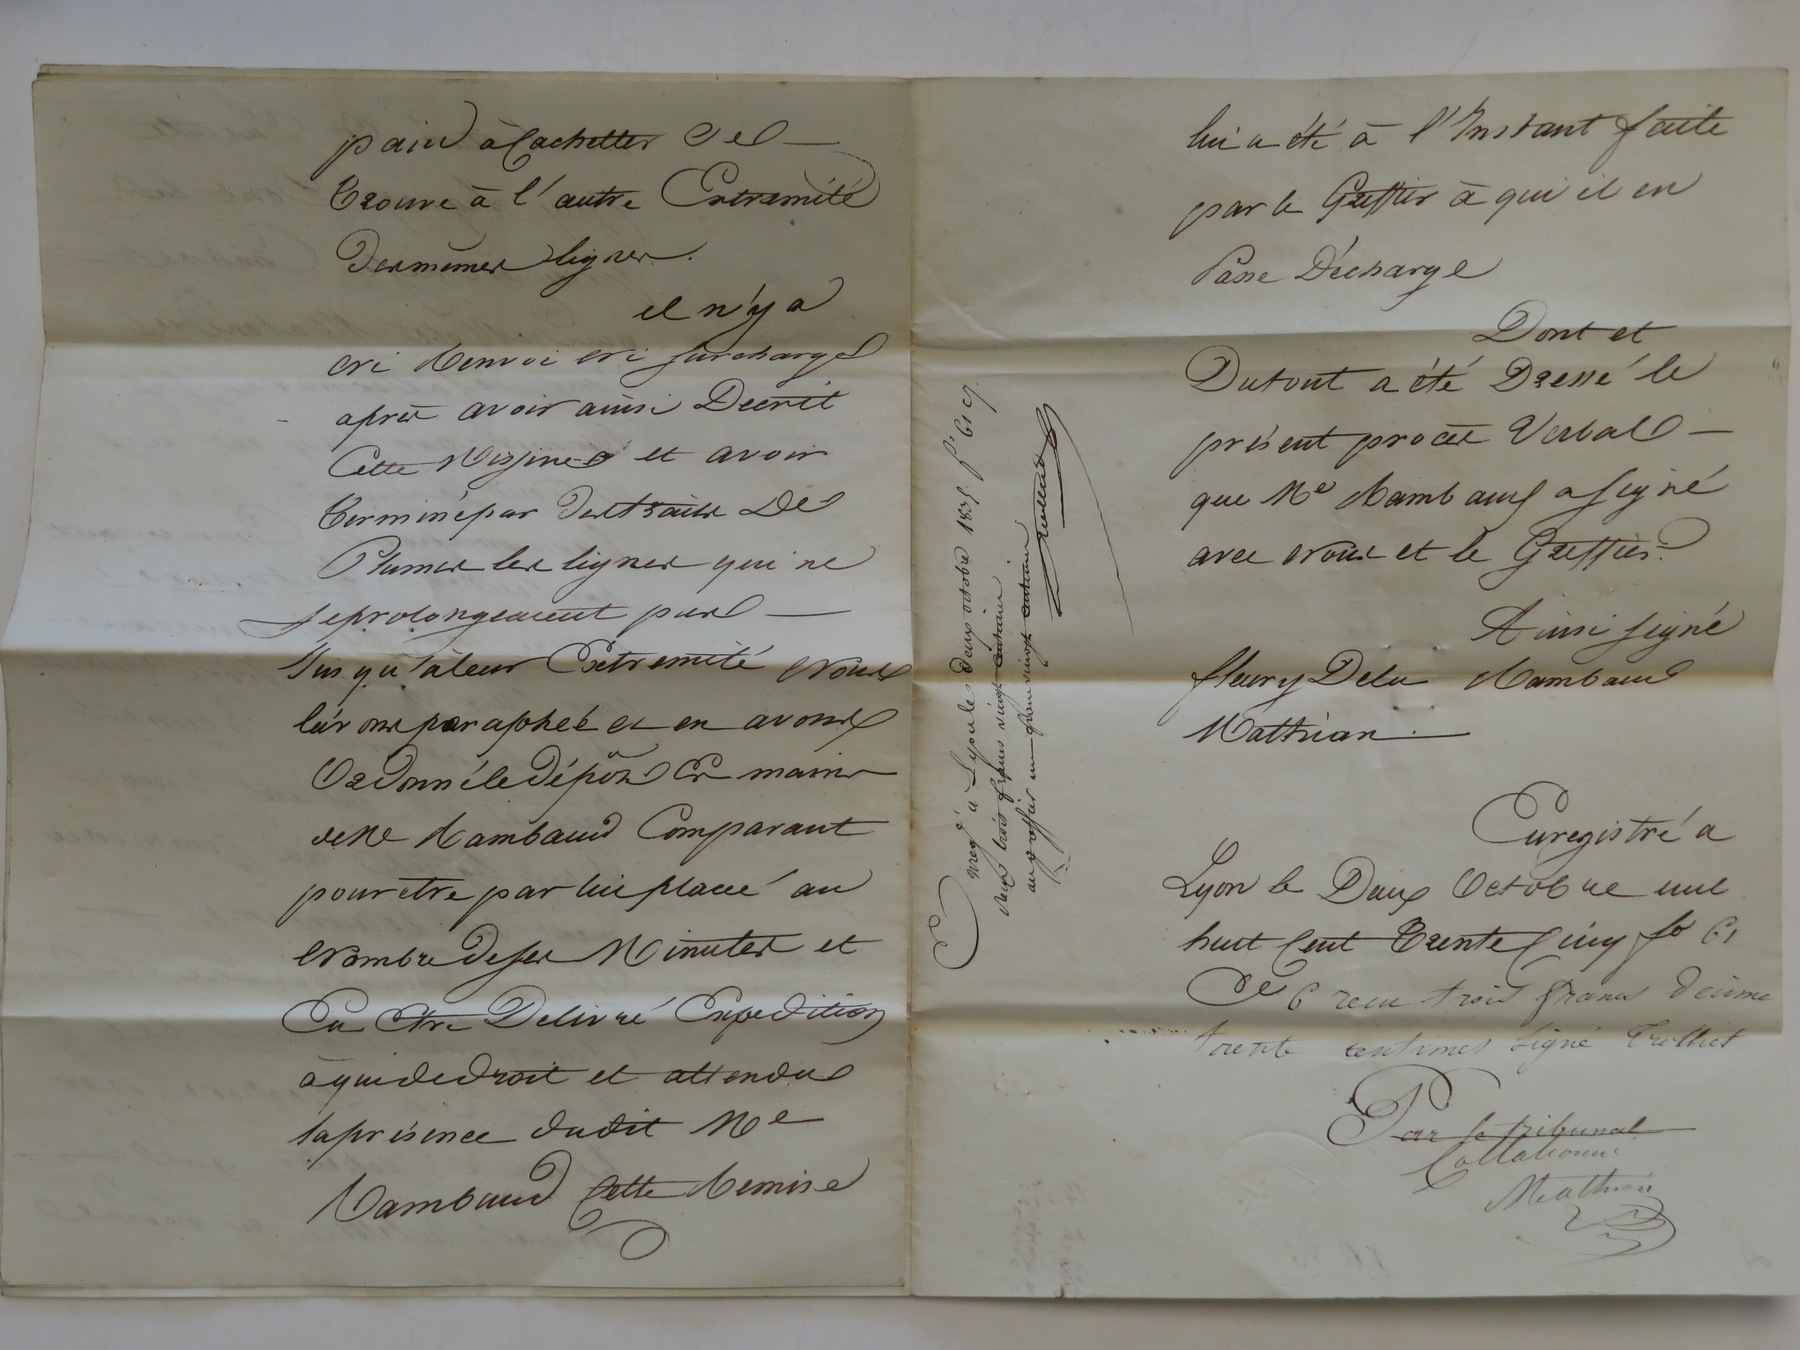 pain à Cachetter Se
trouve à l'autre Extremité
des mêmes lignes.
il n'y a
ni Renvoi ni surcharge
après avoir ainsi Décrit
Cette Missive et avoir
terminé par des traits De
Plumes les lignes qui ne
se prolongeaient pas
Jusqu'à leur Extremité nous
l'avons paraphée et en avons
Ordonné le dépôt Es mains
de Me Rambaud Comparant
pour être par lui placé au
Nombre de ses Minutes et
En être Délivré Expedition
à qui de droit et attendu
la présence dudit Me
Rambaud Cette Remise
Enreg à Lyon le deux octobre 1835 fo 61 C 9
trois francs vingt centimes
un franc vingt centimes
lui a été à l'Instant faite
par le Greffier à qui il en
Passe Décharge
Dont et
Dutout a été Dressé le
présent procès Verbal
que Me Rambaud a signé
avec nous et le Greffier.
Ainsi signé
fleury Delu Rambaud
Mathian
Enregistré a
Lyon le Deux Octobre mil
huit Cent Trente Cinq fo 61
Ce 6 recu trois francs décime
trente centimes Signé Trolliet
Par le tribunal
Collationné
Mathian